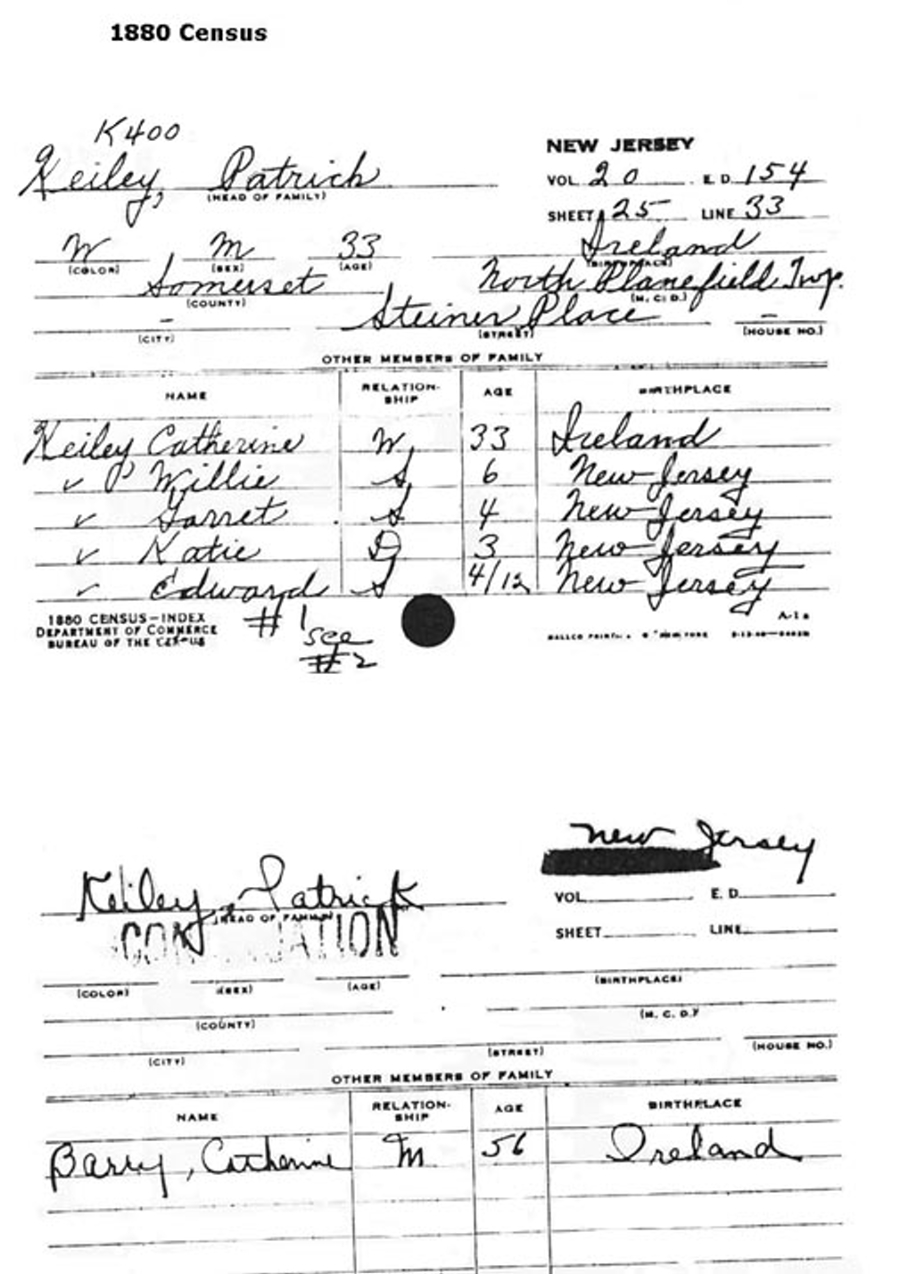 1880 Census
K400
Keiley, Patrick
(HEAD OF FAMILY)
NEW JERSEY
VOL. 20 E. D. 154
SHEET 25 LINE 33
W M 33 Ireland
(COLOR) (SEX) (AGE) (BIRTHPLACE)
Somerset North Planefield Twp.
(COUNTY) (M. C. D.)
- Steiner Place -
(CITY) (STREET) (HOUSE NO.)
OTHER MEMBERS OF FAMILY
NAME RELATION-SHIP AGE BIRTHPLACE
Keiley Catherine W 33 Ireland
✓ P Willie S 6 New Jersey
✓ Garret S 4 New Jersey
✓ Katie D 3 New Jersey
✓ Edward S 4/12 New Jersey
1880 CENSUS—INDEX
DEPARTMENT OF COMMERCE
BUREAU OF THE CENSUS
#1
see
#2
A-1a
New Jersey
Keiley, Patrick
(HEAD OF FAMILY)
VOL. E. D.
SHEET LINE
(COLOR) (SEX) (AGE) (BIRTHPLACE)
(COUNTY) (M. C. D.)
(CITY) (STREET) (HOUSE NO.)
OTHER MEMBERS OF FAMILY
NAME RELATION-SHIP AGE BIRTHPLACE
Barry, Catherine M 56 Ireland